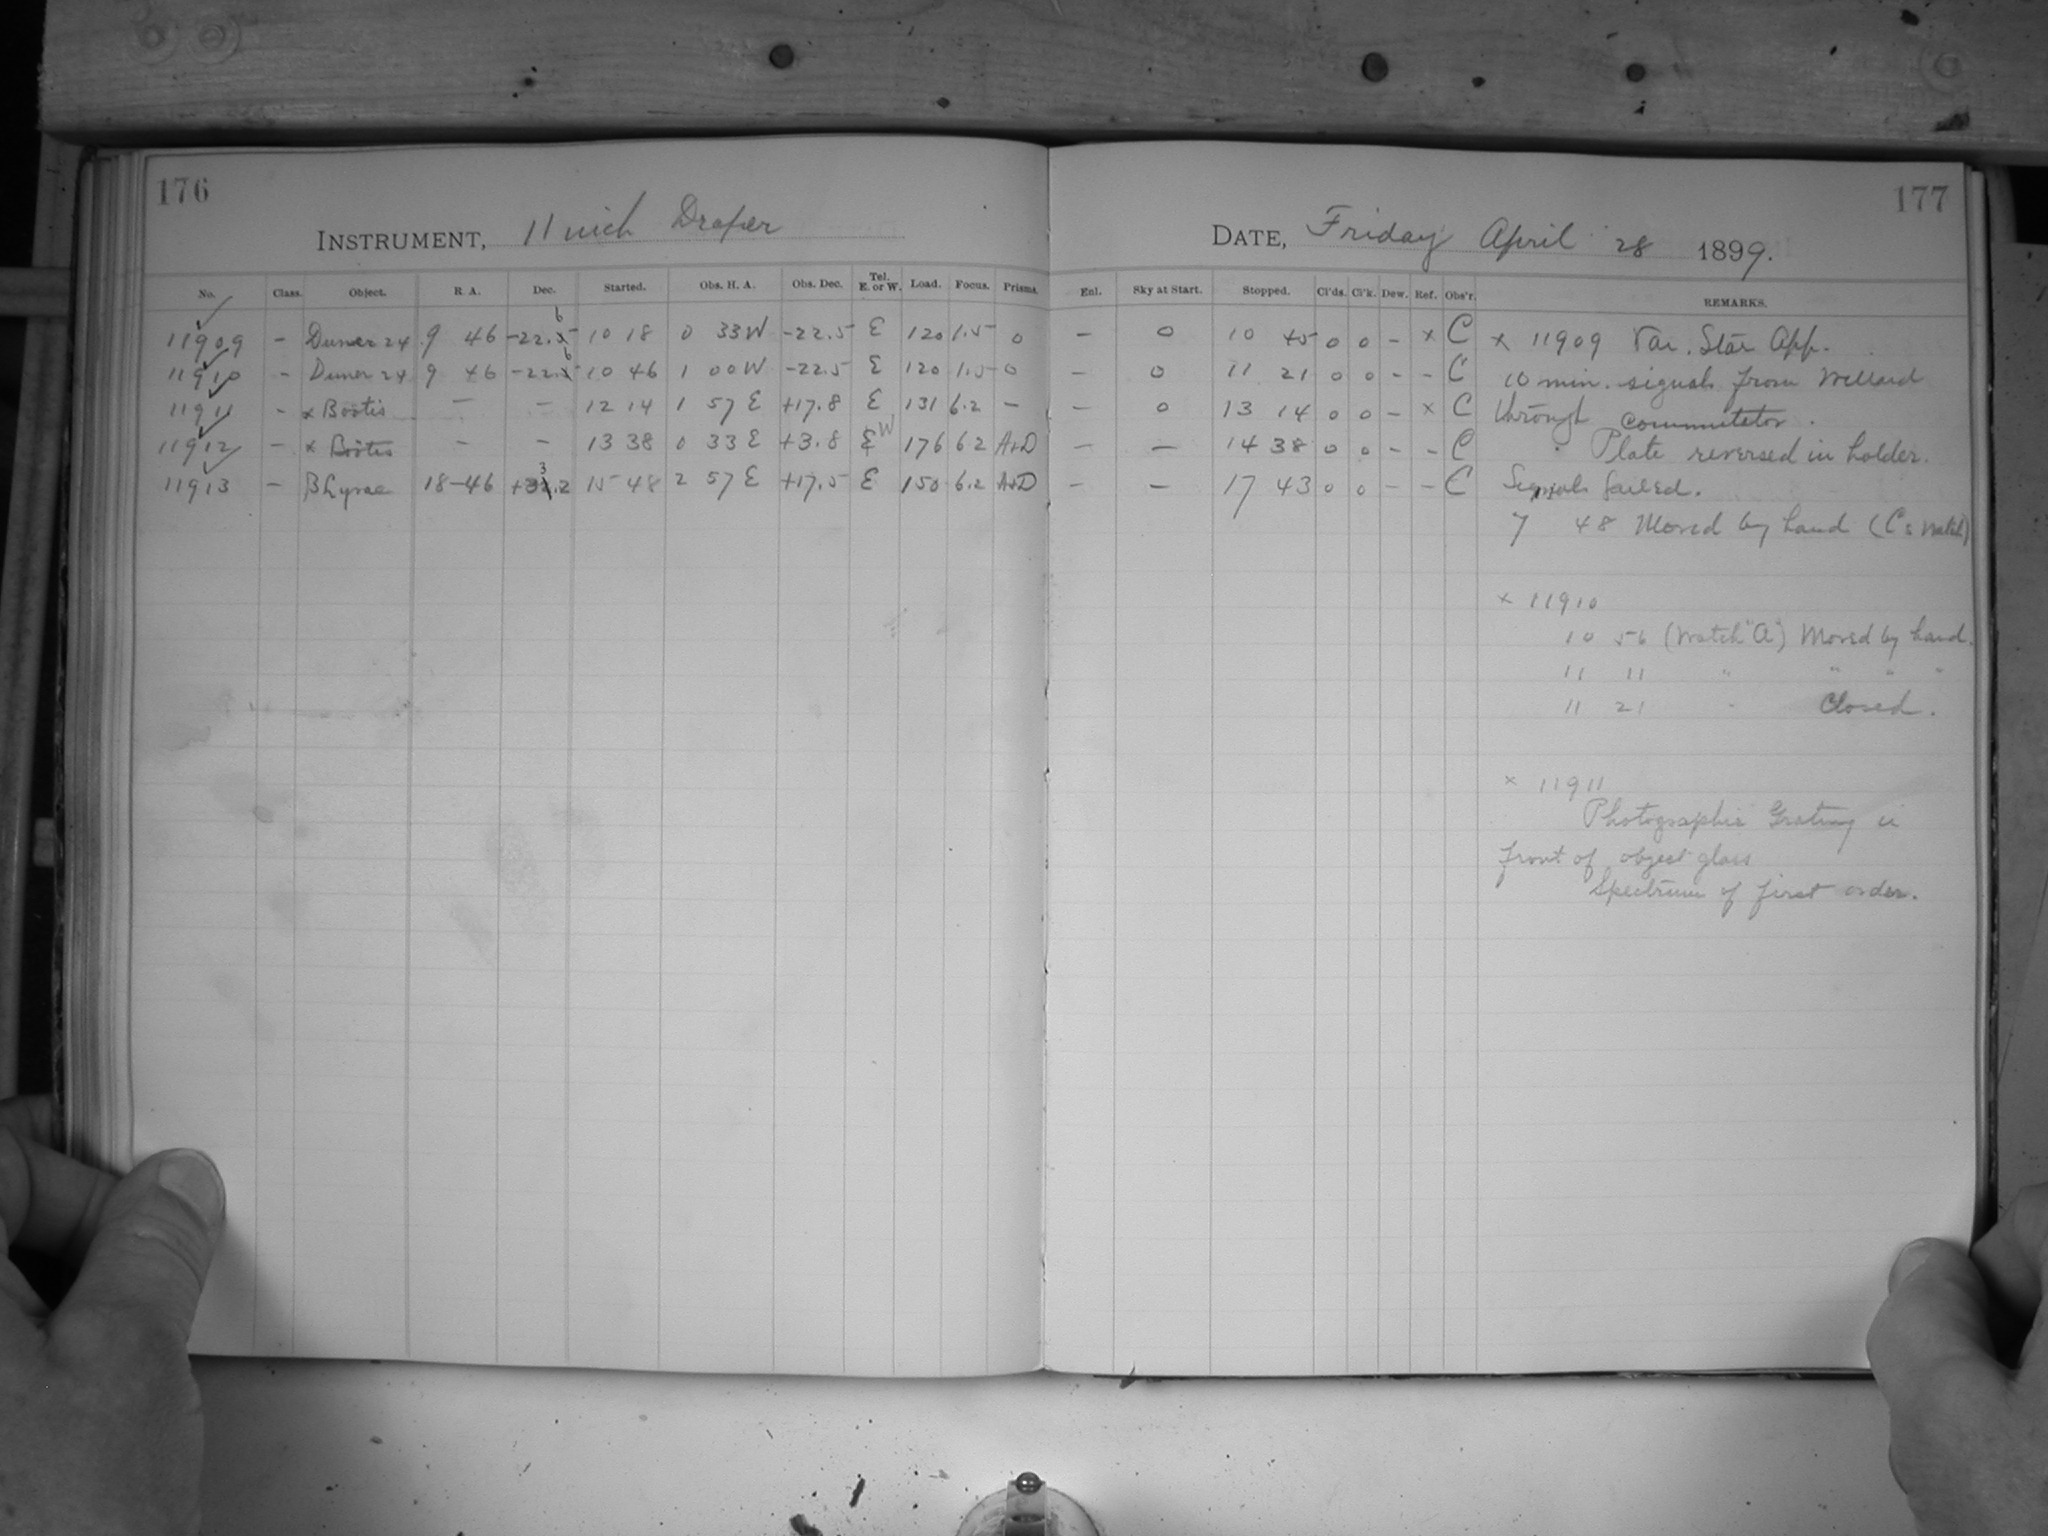 176
INSTRUMENT, 11 inch Draper
No. Class. Object. R. A. Dec. Started. Obs. H. A. Obs. Dec. Tel. E. or W. Load. Focus. Prisms.
11909 - Duner 24 9 46 -22.6 10 18 0 33 W -22.5 E 120 1.5 0
11910 - Duner 24 9 46 -22.6 10 46 1 00 W -22.5 E 120 1.5 0
11911 - α Bootis — — 12 14 1 57 E +17.8 E 131 6.2 —
11912 - α Bootis — — 13 38 0 33 E +3.8 W 176 6.2 A+D
11913 - β Lyrae 18-46 +33.2 15 48 2 57 E +17.5 E 150 6.2 A+D
177
DATE, Friday April 28 1899.
Enl. Sky at Start. Stopped. Cl'ds. Cl'k. Dew. Ref. Obs'r. REMARKS.
— 0 10 45 0 0 - x C x 11909 Var. Star App.
— 0 11 21 0 0 - - C 10 min. signals from Willard
— 0 13 14 0 0 - x C through commutator.
— — 14 38 0 0 - - C Plate reversed in holder.
— — 17 43 0 0 - - C Signals failed.
7 48 Moved by hand (C's watch)
x 11910
10 56 (Watch "A") Moved by hand.
11 11 " " " "
11 21 " Closed.
x 11911
Photographic Grating in
front of object glass
Spectrum of first order.